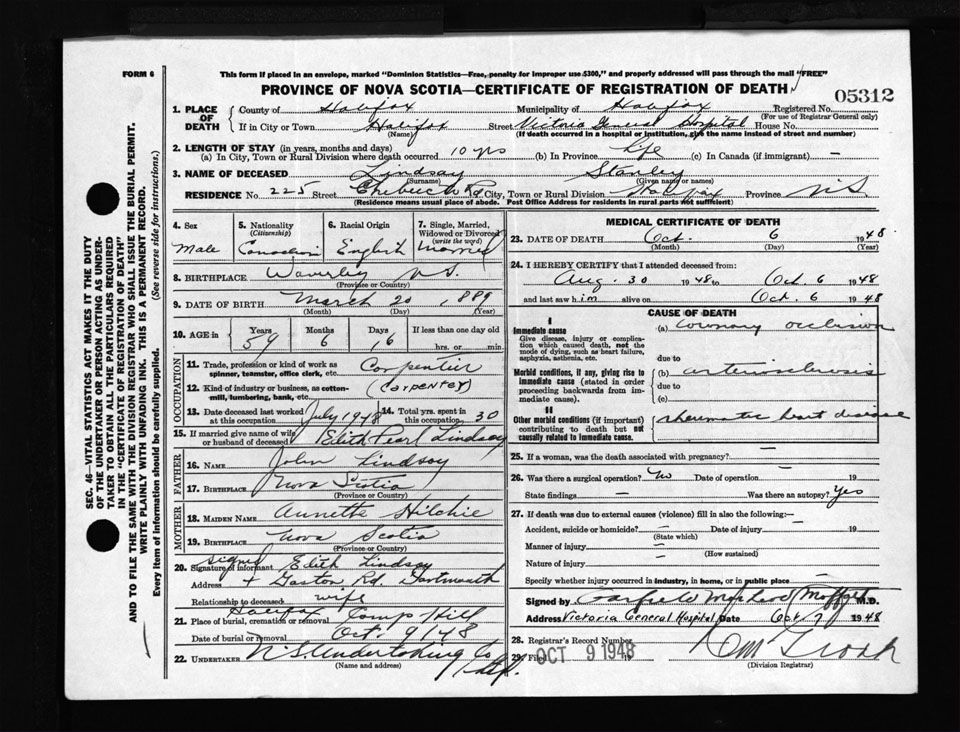 FORM 6
This form if placed in an envelope, marked "Dominion Statistics—Free, penalty for improper use $300," and properly addressed will pass through the mail "FREE"
PROVINCE OF NOVA SCOTIA—CERTIFICATE OF REGISTRATION OF DEATH
05312
1. PLACE OF DEATH County of Halifax Municipality of Halifax Registered No.
(For use of Registrar General only)
If in City or Town Halifax Street Victoria General Hospital House No.
(Name) (If death occurred in a hospital or institution, give the name instead of street and number)
2. LENGTH OF STAY (in years, months and days)
(a) In City, Town or Rural Division where death occurred 10 yrs (b) In Province Life (c) In Canada (if immigrant) —
3. NAME OF DECEASED Lindsay Stanley
(Surname) (Given name or names)
RESIDENCE No. 225 Street Chebucto Rd City, Town or Rural Division Halifax Province N.S.
(Residence means usual place of abode. Post Office Address for residents in rural parts not sufficient)
4. Sex 5. Nationality 6. Racial Origin 7. Single, Married, Widowed or Divorced
(Citizenship) (write the word)
Male Canadian English Married
8. BIRTHPLACE Waverley N.S.
(Province or Country)
9. DATE OF BIRTH March 20 1889
(Month) (Day) (Year)
10. AGE in Years Months Days If less than one day old
59 6 16 hrs. or min.
OCCUPATION
11. Trade, profession or kind of work as spinner, teamster, office clerk, etc. Carpentier
12. Kind of industry or business, as cotton-mill, lumbering, bank, etc. (Carpenter)
13. Date deceased last worked at this occupation July 1948 14. Total yrs. spent in this occupation 30
15. If married give name of wife or husband of deceased Edith Pearl Lindsay
FATHER
16. NAME John Lindsay
17. BIRTHPLACE Nova Scotia
(Province or Country)
MOTHER
18. MAIDEN NAME Annette
19. BIRTHPLACE Nova Scotia
(Province or Country)
20. Signature of informant signed Edith Lindsay
Address Gaston Rd. Dartmouth
Relationship to deceased wife
21. Place of burial, cremation or removal Halifax Camp Hill
Date of burial or removal Oct. 9/48
22. UNDERTAKER N.S. Undertaking Co
(Name and address)
MEDICAL CERTIFICATE OF DEATH
23. DATE OF DEATH Oct. 6 1948
(Month) (Day) (Year)
24. I HEREBY CERTIFY that I attended deceased from:
Aug. 30 1948 to Oct. 6 1948
and last saw him alive on Oct. 6 1948
CAUSE OF DEATH
I
Immediate cause (a) coronary occlusion
Give disease, injury or complication which caused death, not the mode of dying, such as heart failure, asphyxia, asthenia, etc.
due to
Morbid conditions, if any, giving rise to immediate cause (stated in order proceeding backwards from immediate cause).
(b) arteriosclerosis
due to
(c)
II
Other morbid conditions (if important) contributing to death but not causally related to immediate cause.
rheumatic heart disease
25. If a woman, was the death associated with pregnancy? —
26. Was there a surgical operation? No Date of operation — 19
State findings — Was there an autopsy? Yes
27. If death was due to external causes (violence) fill in also the following:—
Accident, suicide or homicide? — Date of injury — 19
(State which)
Manner of injury —
(How sustained)
Nature of injury —
Specify whether injury occurred in industry, in home, or in public place —
Signed by Garfield (Moffatt) M.D.
Address Victoria General Hospital Date Oct. 7 1948
28. Registrar's Record Number
29. Filed OCT 9 1948
(Division Registrar)
SEC. 46—VITAL STATISTICS ACT MAKES IT THE DUTY
OF THE UNDERTAKER OR PERSON ACTING AS UNDER-
TAKER TO OBTAIN ALL THE PARTICULARS REQUIRED
IN THE "CERTIFICATE OF REGISTRATION OF DEATH"
AND TO FILE THE SAME WITH THE DIVISION REGISTRAR WHO SHALL ISSUE THE BURIAL PERMIT.
WRITE PLAINLY WITH UNFADING INK. THIS IS A PERMANENT RECORD.
Every item of Information should be carefully supplied. (See reverse side for instructions.)